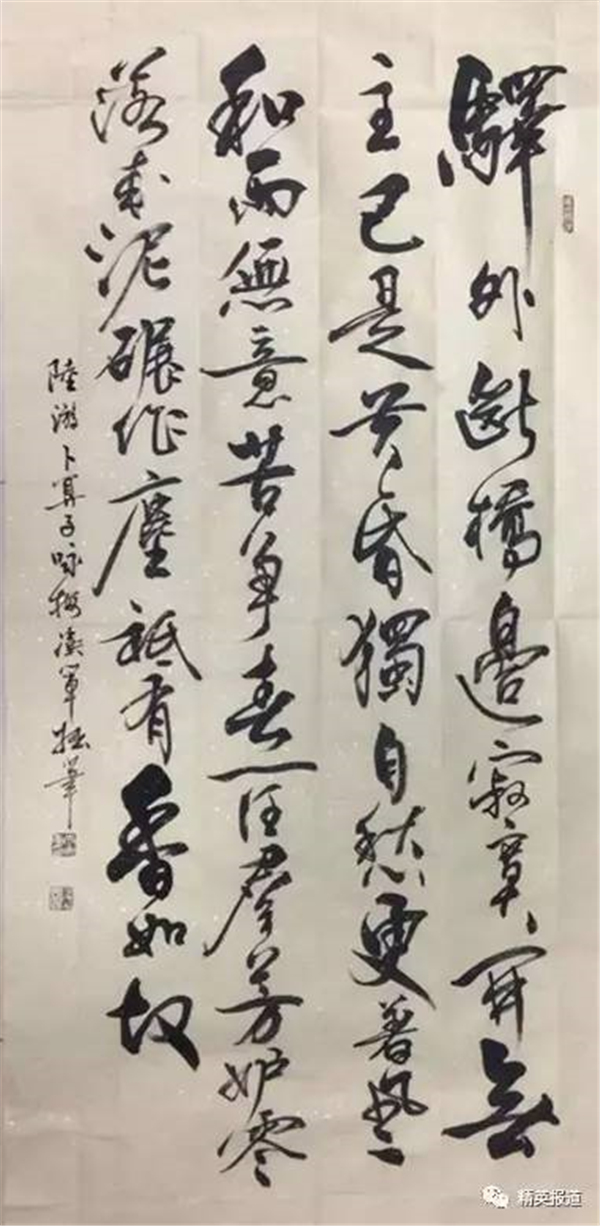 驛外斷橋邊寂寞開無
主已是黃昏獨自愁更著風
和雨無意苦爭春一任群芳妒零
落成泥碾作塵祇有香如故
陸游卜算子咏梅軍拙筆
精英报道